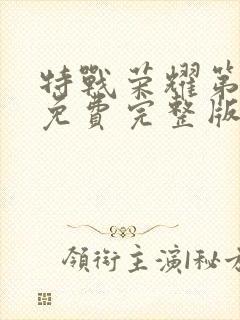 特戰荣耀第
免費完整版
領銜主演1秘方